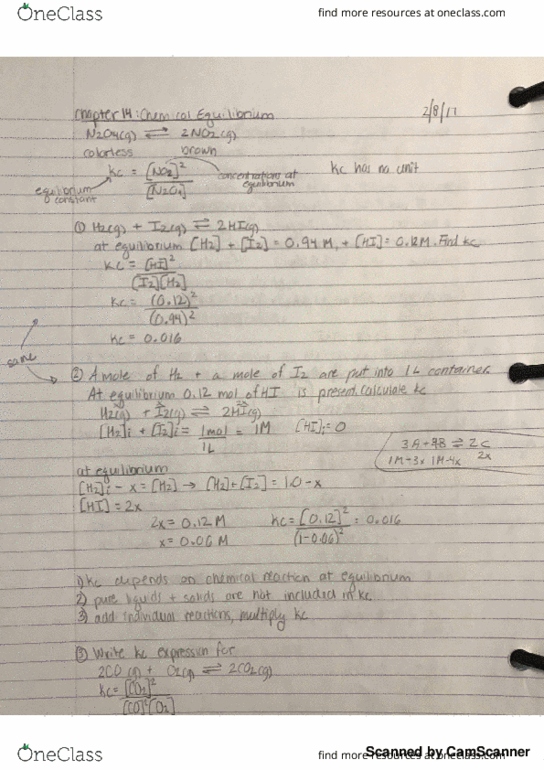 OneClass
find more resources at oneclass.com
Chapter 14: Chemical Equilibrium
2/8/17
N2O4(g) ⇌ 2NO2(g)
colorless brown
Kc = [NO2]² / [N2O4]
concentrations at equilibrium
Kc has no unit
equilibrium constant
① H2(g) + I2(g) ⇌ 2HI(g)
at equilibrium [H2] + [I2] = 0.94 M, + [HI] = 0.12M. Find Kc
Kc = [HI]² / [I2][H2]
Kc = (0.12)² / (0.94)²
Kc = 0.016
same
② A mole of H2 + a mole of I2 are put into 1L container.
At equilibrium 0.12 mol of HI is present. Calculate Kc
H2(g) + I2(g) ⇌ 2HI(g)
[H2]i + [I2]i = 1mol / 1L = 1M [HI]i = 0
3A + 4B ⇌ 2C
1M-3x 1M-4x 2x
at equilibrium
[H2]i - x = [H2] → [H2] + [I2] = 1.0 - x
[HI] = 2x
2x = 0.12M Kc = [0.12]² / (1-0.06)² = 0.016
x = 0.06 M
1) Kc depends on chemical reaction at equilibrium
2) pure liquids + solids are not included in Kc
3) add individual reactions, multiply Kc
③ Write Kc expression for
2CO(g) + O2(g) ⇌ 2CO2(g)
Kc = [CO2]² / [CO]²[O2]
OneClass
find more resources at oneclass.com
Scanned by CamScanner